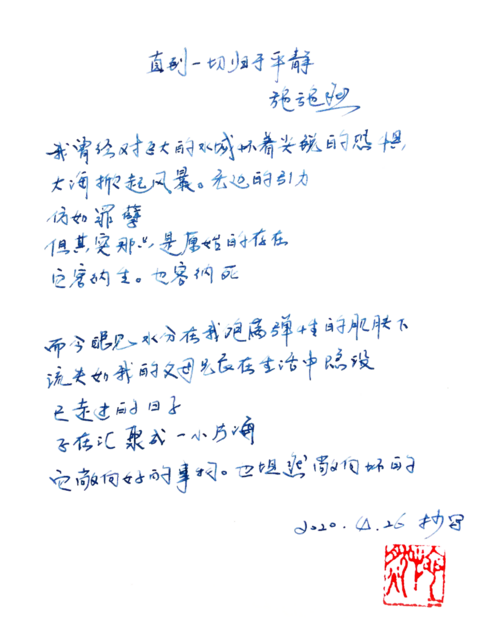 直到一切归于平静
我曾经对巨大的水域怀着尖锐的恐惧,
大海掀起风暴。永远的引力
仿如罪孽
但其实那只是原始的存在
它容纳生。也容纳死
而今眼见水分在我饱满弹性的肌肤下
流失如我的父母兄长在生活中隐没
已走过的日子
正在汇聚成一小片海
它敞向好的事物。也坦然敞向坏的
2020.4.26 抄写